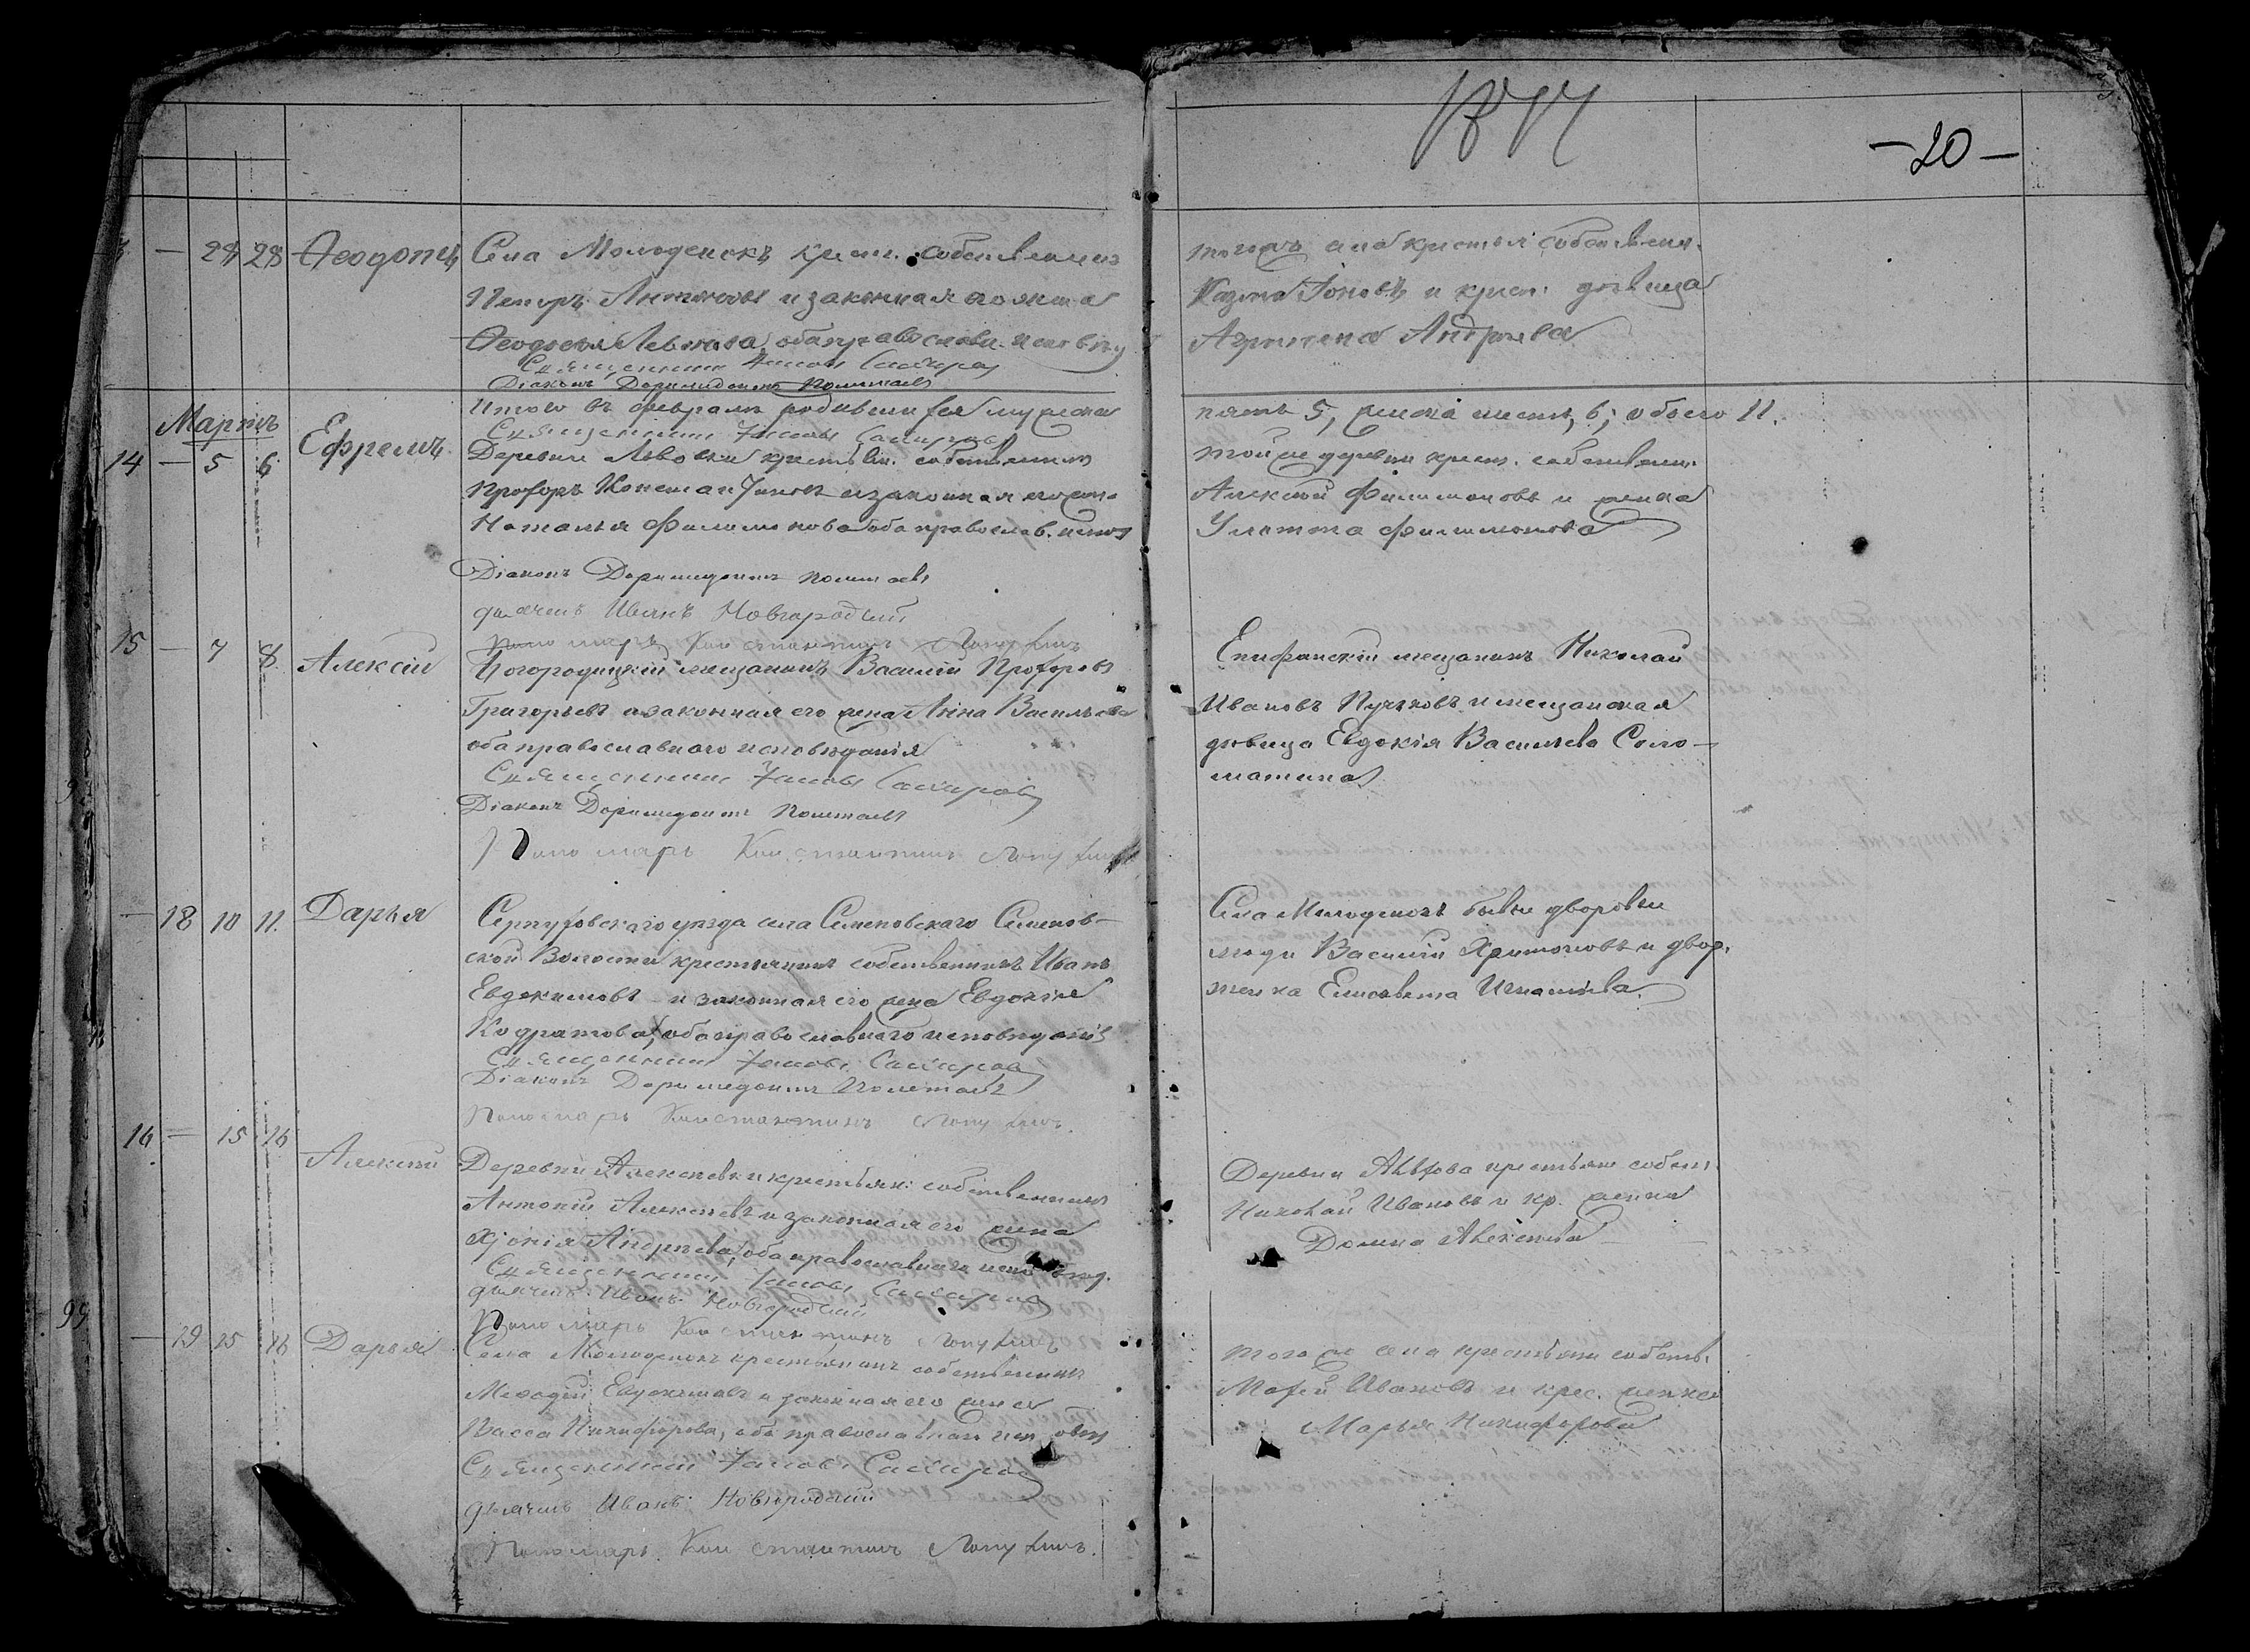 1874
-20-
28 28 Ѳеодотъ Села Молоденокъ крест. собственникъ
Петръ Антоновъ и законная его жена
Ѳеодосья Левонова, оба православн. исповѣд
Священникъ Сахаровъ
Діаконъ Доримедонтъ Полетаевъ
тогожъ села крестьян. собственн.
Козьма Іоновъ и крест. дѣвица
Агрипена Андрѣева
Итого въ февралѣ родившихся мужска
пять 5, женска шесть, 6; обоего 11.
Священникъ Сахаровъ
Мартъ
14 — 5 6 Ефремъ Деревни Львовки крестьян. собственникъ
Прохоръ и законная его жена
Наталья Филимонова оба православ. испов
Діаконъ Доримедонтъ Полетаевъ
дьячекъ Иванъ Новгородскій
Пономарь Константинъ Лопухинъ
тойже деревни крест. собственн.
Алексѣй Филимоновъ и жена
Филимонова
15 — 7 8 Алексій Богородицкій мещанинъ Василій Прохоровъ
Григорьевъ и законная его жена Анна Васильева
оба православнаго исповѣданія
Священникъ Сахаровъ
Діаконъ Доримедонтъ Полетаевъ
Пономарь Константинъ Лопухинъ
Епифанскій мещанинъ Николай
Ивановъ Пучковъ и мещанская
дѣвица Евдокія Васильева Соло-
матина
— 18 10 11. Дарья Серпуховскаго уѣзда села Семеновскаго Семенов-
ской Волости крестьянинъ собственникъ Иванъ
Евдокимовъ и законная его жена Евдокія
Кодратова, оба православнаго исповѣданія
Священникъ Сахаровъ
Діаконъ Доримедонтъ Полетаевъ
Пономарь Константинъ Лопухинъ.
Села Молоденокъ бывш дворовые
люди Василій Харитоновъ и двор.
женка Елисавета Игнатьева.
16 — 15 16 Алексѣй Деревни Алексѣевки крестьян: собственникъ
Антоній Алексѣевъ и законная его жена
Хіонія Андрѣева, оба православнаго исповѣд.
Священникъ Сахаровъ
дьячекъ Иванъ Новгородскій
Пономарь Константинъ Лопухинъ
Деревни крестьян собств.
Николай Ивановъ и кр. женка
Домна Алексѣева
— 19 15 16 Дарья Села Молоденокъ крестьянинъ собственникъ
Меѳодій Евдокимовъ и законная его жена
Васса Никифорова, оба православнаго исповѣд
Священникъ Сахаровъ
дьячекъ Иванъ Новгородскій
Пономарь Константинъ Лопухинъ.
тогоже села крестьян собств.
Ивановъ и крес. женка
Марья Никифорова